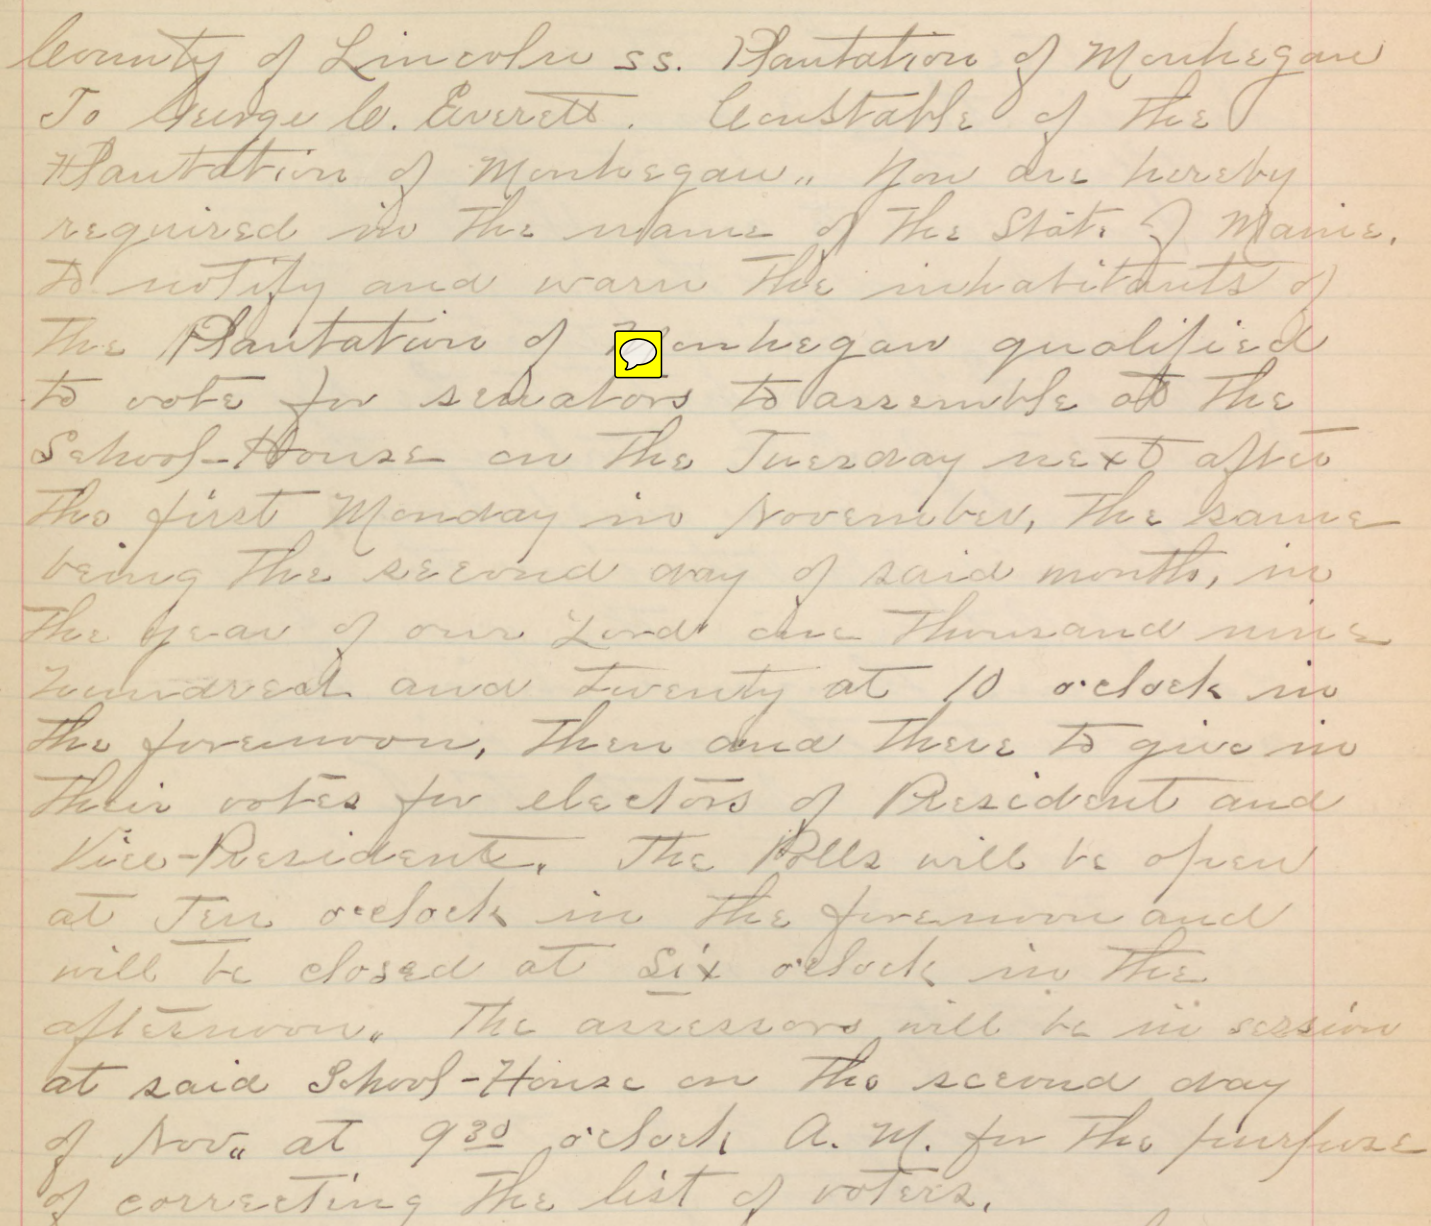 County of Lincoln ss. Plantation of Monhegan
To George W. Everett. Constable of the
Plantation of Monhegan,, You are hereby
required in the name of the State of Maine,
to notify and warn the inhabitants of
the Plantation of Monhegan qualified
to vote for senators to assemble at the
School-House on the Tuesday next after
the first Monday in November, the same
being the second day of said month, in
the year of our Lord one thousand nine
hundred and twenty at 10 o'clock in
the forenoon, then and there to give in
their votes for electors of President and
Vice-President. The Polls will be open
at Ten o'clock in the forenoon and
will be closed at Six o'clock in the
afternoon. The assessors will be in session
at said School-House on the second day
of Nov,, at 9 30 o'clock A. M. for the purpose
of correcting the list of voters.